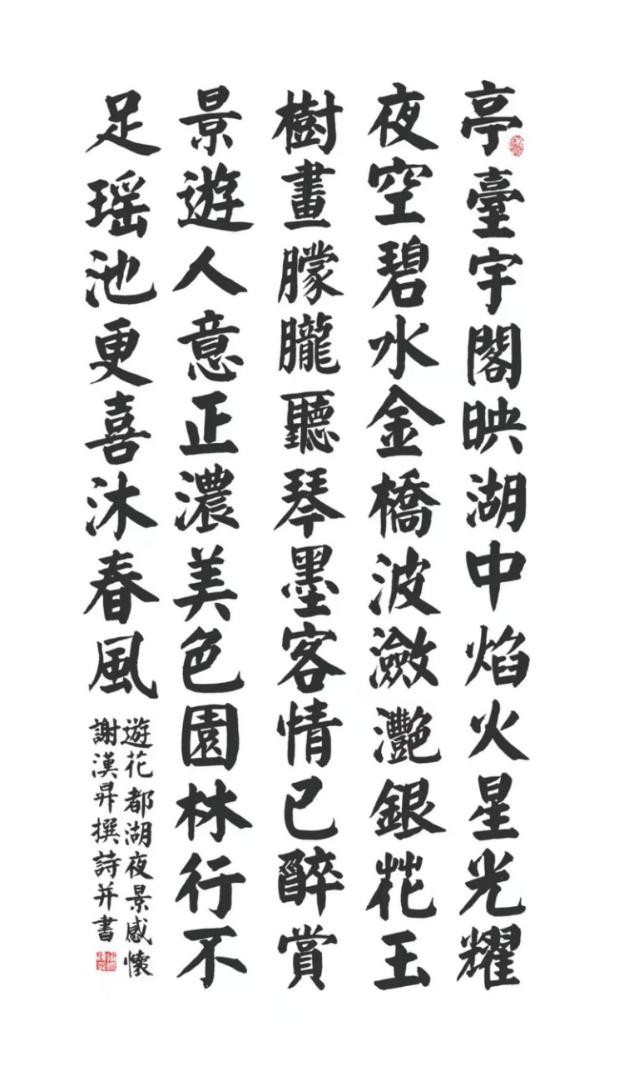 亭臺宇閣映湖中焰火星光耀
夜空碧水金橋波瀲灩銀花玉
樹畫朦朧聽琴墨客情已醉賞
景遊人意正濃美色園林行不
足瑶池更喜沐春風
遊花都湖夜景感懷
謝漢昇撰詩并書